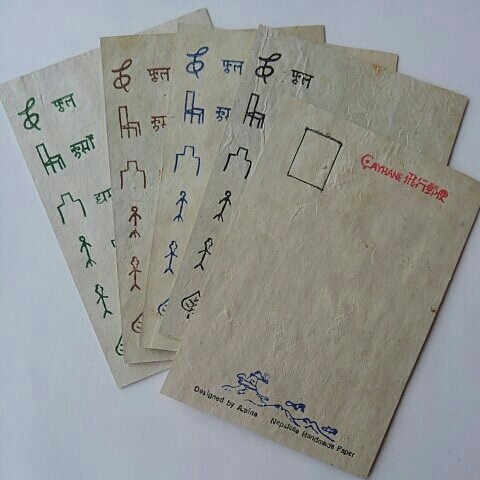 फूल
कुर्सी
फूल
फूल
फूल
CAYHANE 飛行郵便
Designed by Amina
Nepalese Handmade Paper